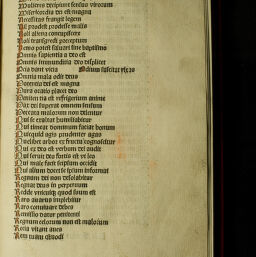 Mulieres decipiunt sensus virorum
Misericordia dei est magna
Necessitas frangit legem
Nil prodest prodesse malis
Noli aliena concupiscere
Noli transgredi preceptum
Nemo potest saluari sine baptismo
Omnis sapientia a deo est
Omnis immunditia deo displicet
Ocia dant vicia
Omnia mala odit deus
Potentia dei est magna
Pura oratio placet deo
Penitentia est refrigerium anime
Pax dei superat omnem sensum
Peccata malorum non dilentur
Qui se exaltat humiliabitur
Qui timent dominum faciat bonum
Quicquid agis prudenter agas
Quelibet arbor ex fructu cognoscitur
Qui ex deo est verbum dei audit
Qui seruit deo fortis est vt leo
Qui male facit seipsum occidit
Qui alium docet seipsum informat
Regnum dei non desolabitur
Regnat deus in perpetuum
Redde vnicuique quod suum est
Raro auarus implebitur
Raro conuiuare debes
Remissio datur penitenti
Regnum celorum non est malorum